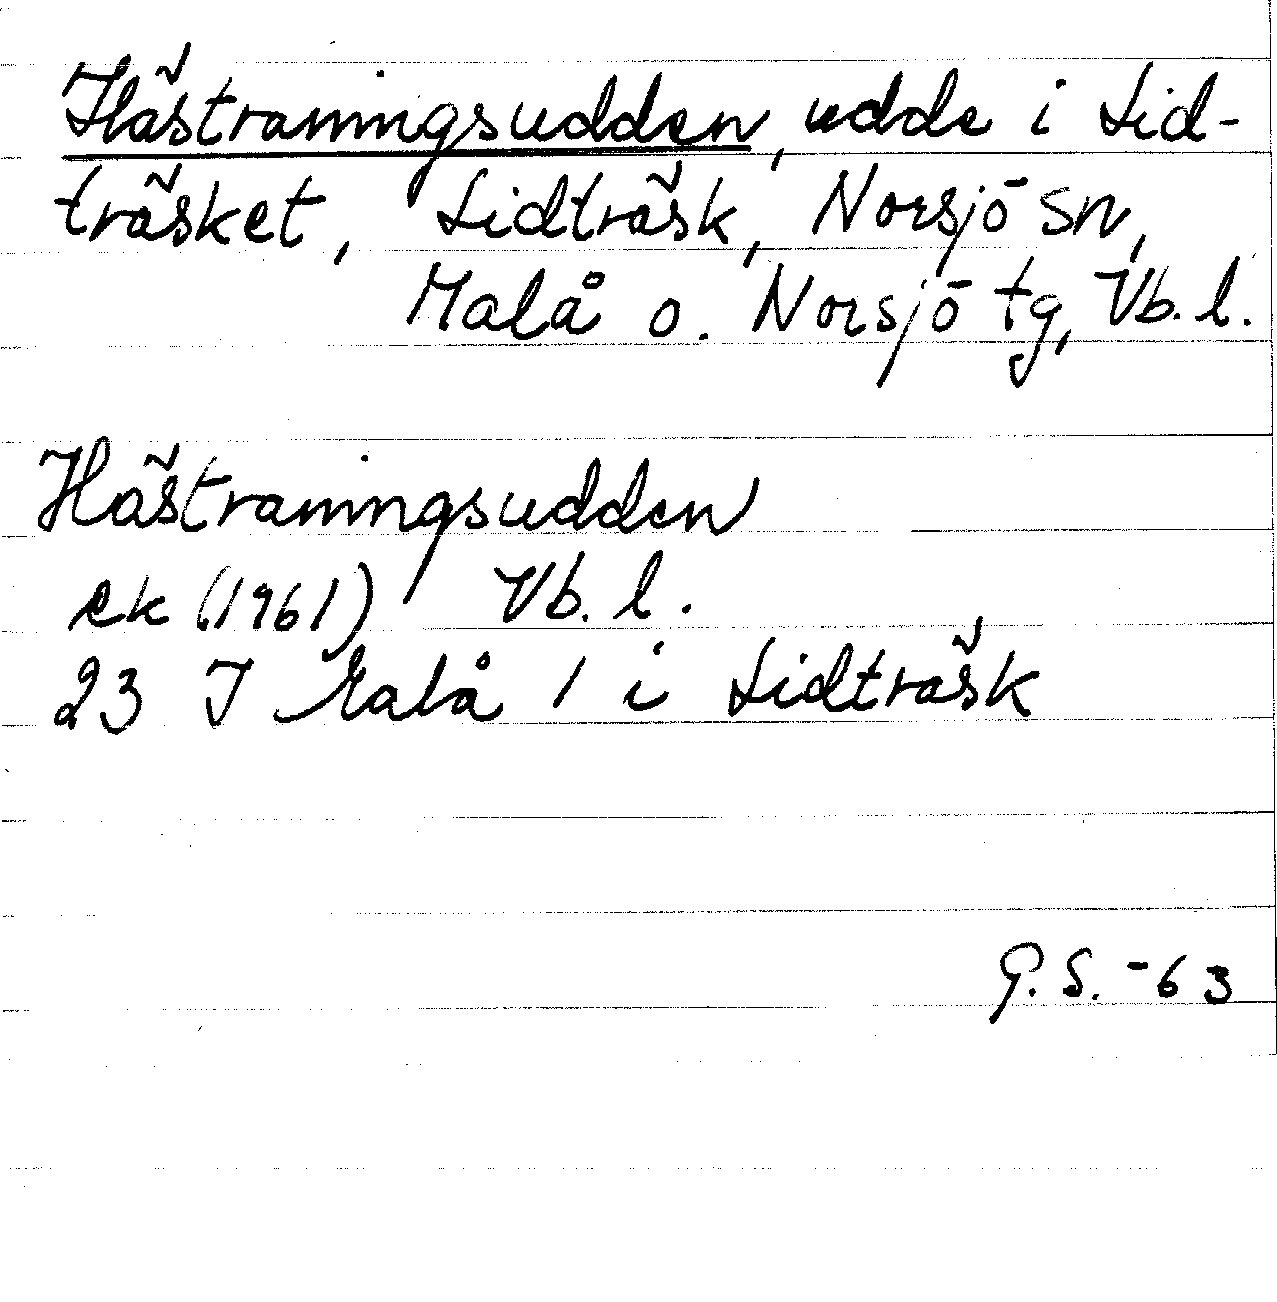 Hästraningsudden, udde i Lid-
träsket, Lidträsk, Norsjö sn,
Malå o. Norsjö tg, Vb. l.
Hästraningsudden
ek (1961) Vb. l.
23 I Malå 1 i Lidträsk
G. S. -63